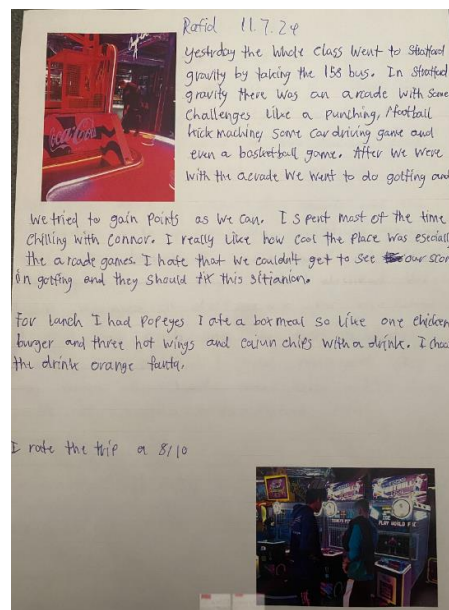 Rafid 11.7.24
Yestrday the whole class went to Stratford
gravity by taking the 158 bus. In Stratford
gravity there was an arcade with some
challenges like a punching, football
kick machine, some car driving game and
even a basketball game. After we were
with the acrade we went to do golfing and
we tried to gain points as we can. I spent most of the time
chilling with Connor. I really like how cool the place was esecially
the arcade games. I hate that we couldn't get to see our scor
in golfing and they should fix this
For lunch I had popeyes I ate a box meal so like one chicken
burger and three hot wings and cajun chips with a drink. I
the drink orange fanta.
I rate the trip a 8/10
Coca-Cola